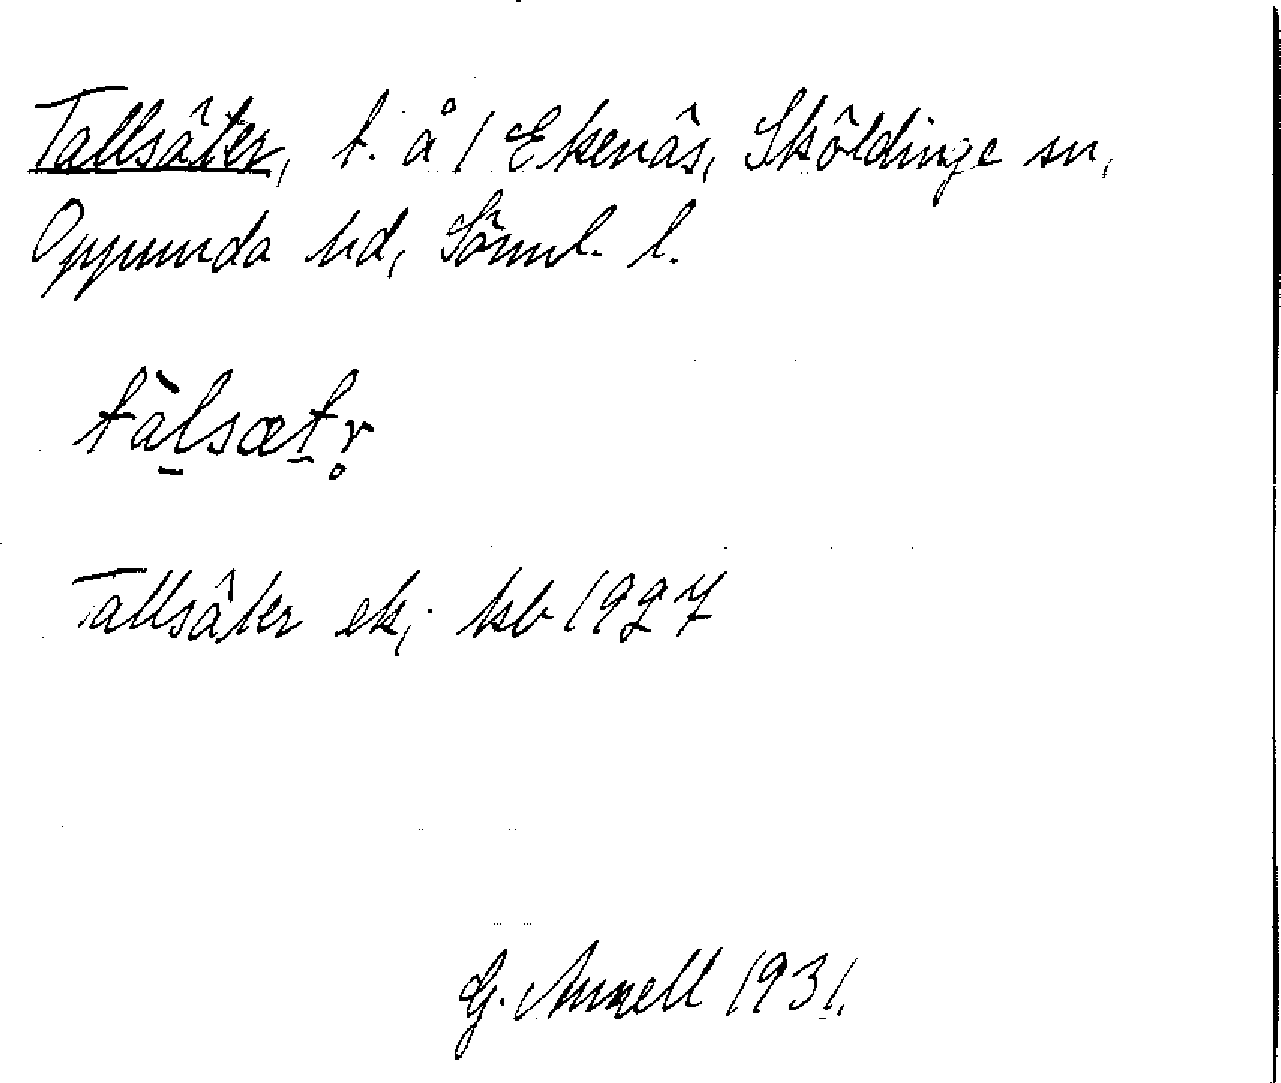 Tallsäter, t. å 1 Ekenäs, Sköldinge sn,
Oppunda hd, Söml. l.
tàl̠sæt̠r̥
Tallsäter ek, kb 1927
G. Annell 1931.